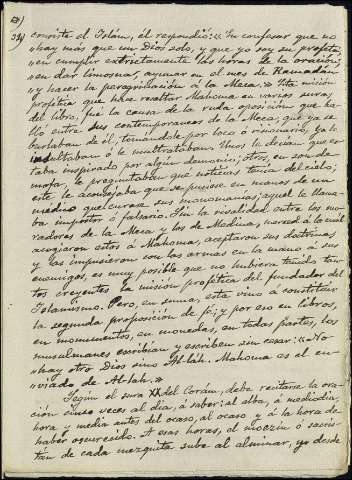 39)
consiste el Islám, él respondió: «En confesar que no
»hay más que un Dios solo, y que yo soy su profeta,
»en cumplir estrictamente las horas de la oración,
»en dar limosnas, ayunar en el mes de Ramadán
»y hacer la peregrinación á la Meca.» Esta misión
profética que hace resaltar Mahoma en varias suras
del libro, fué la causa de la ruda oposición que ha-
lló entre sus contemporaneos de la Meca, que ya se
burlaban de él, tomándole por loco ó visionario, ya le
insultaban ó le maltrataban. Unos le decían que es-
taba inspirado por algún demonio; otros, en son de
mofa, le preguntaban qué noticias tenía del cielo;
este le aconsejaba que se pusiese en manos de un
médico que curase sus monomanías; aquel le llama-
ba impostor ó falsario. Sin la rivalidad entre los mo-
radores de la Meca y los de Medina, merced á la cuál
acojaron estos á Mahoma, aceptaron sus doctrinas
y las impusieron con las armas en la mano á sus
enemigos, es muy posible que no hubiera tenido tan-
tos creyentes la misión profética del fundador del
Islamismo. Pero, en suma, esta vino á constituir
la segunda proposición de fe; y por eso en libros,
en monumentos, en monedas, en todas partes, los
musulmanes escribían y escriben sin cesar: «No
»hay otro Dios sino Al-lah. Mahoma es el en-
»viado de Al-lah.»
Según el sura XX del Corán, debe recitarse la ora-
ción cinco veces al día, á saber: al alba, á mediodía,
hora y media antes del ocaso, al ocaso y á la hora de
haber oscurecido. A esas horas, el moezín ó sacris-
tán de cada mezquita sube al alminar, y desde